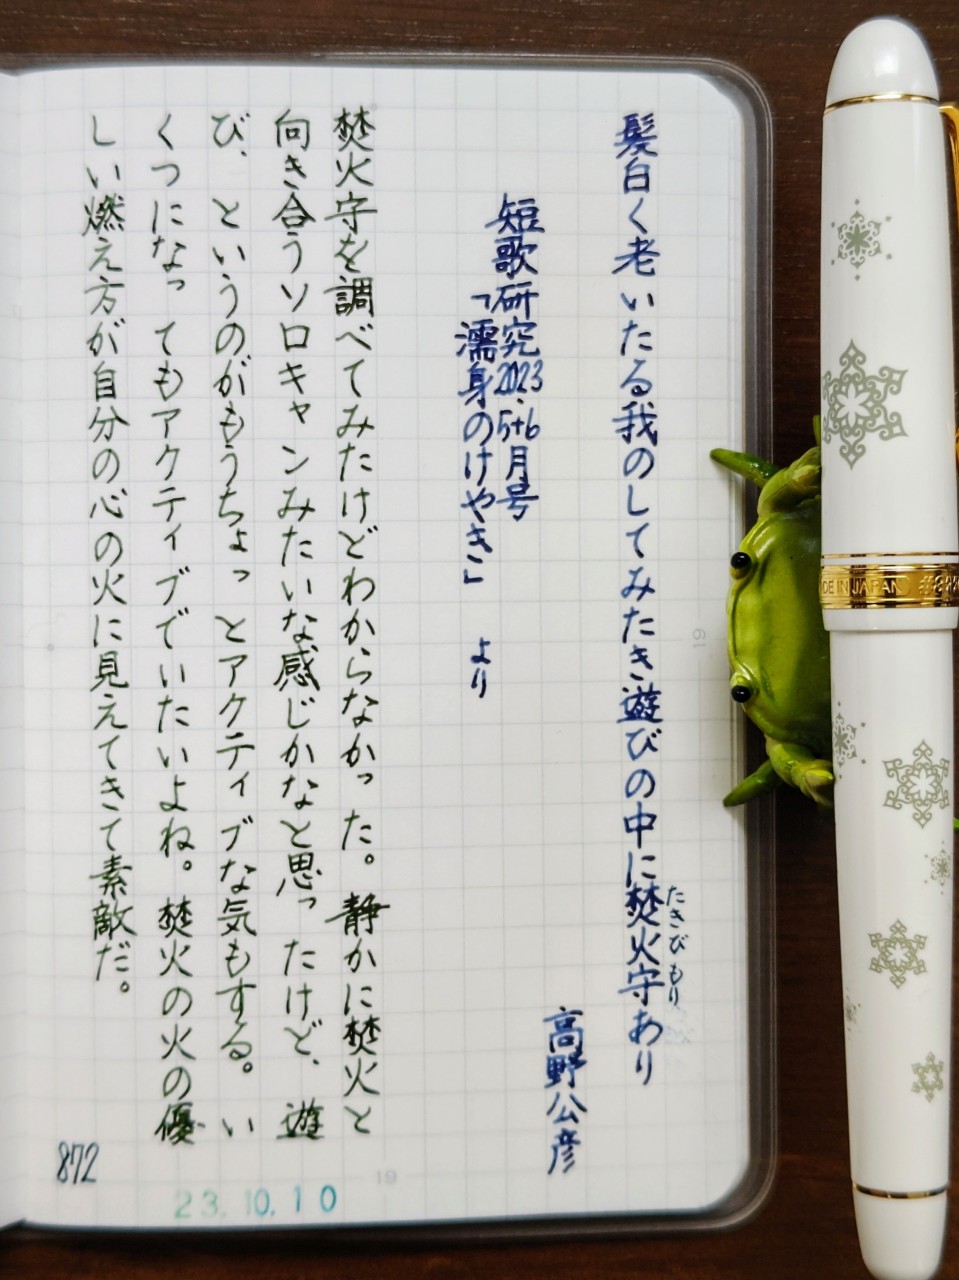 髪白く老いたる我のしてみたき遊びの中に焚火守あり
たきびもり
高野公彦
短歌研究2023.5+6月号
「濡身のけやき」 より
焚火守を調べてみたけどわからなかった。静かに焚火と
向き合うソロキャンみたいな感じかなと思ったけど、遊
び、というのがもうちょっとアクティブな気もする。い
くつになってもアクティブでいたいよね。焚火の火の優
しい燃え方が自分の心の火に見えてきて素敵だ。
872
23.10.10
19
19
DE IN JAPAN